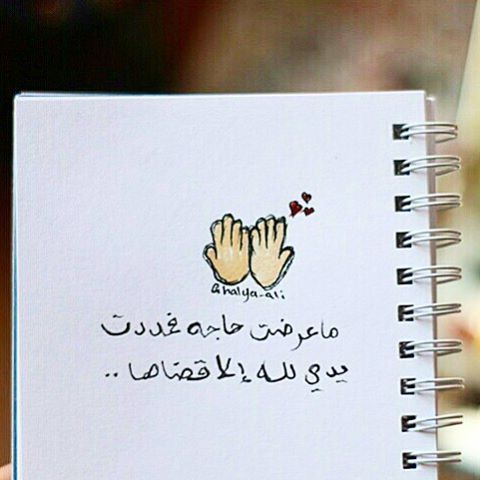 Ghalya-ali
ما عرضت حاجه فمددت
يدي لله إلا قضاها ..